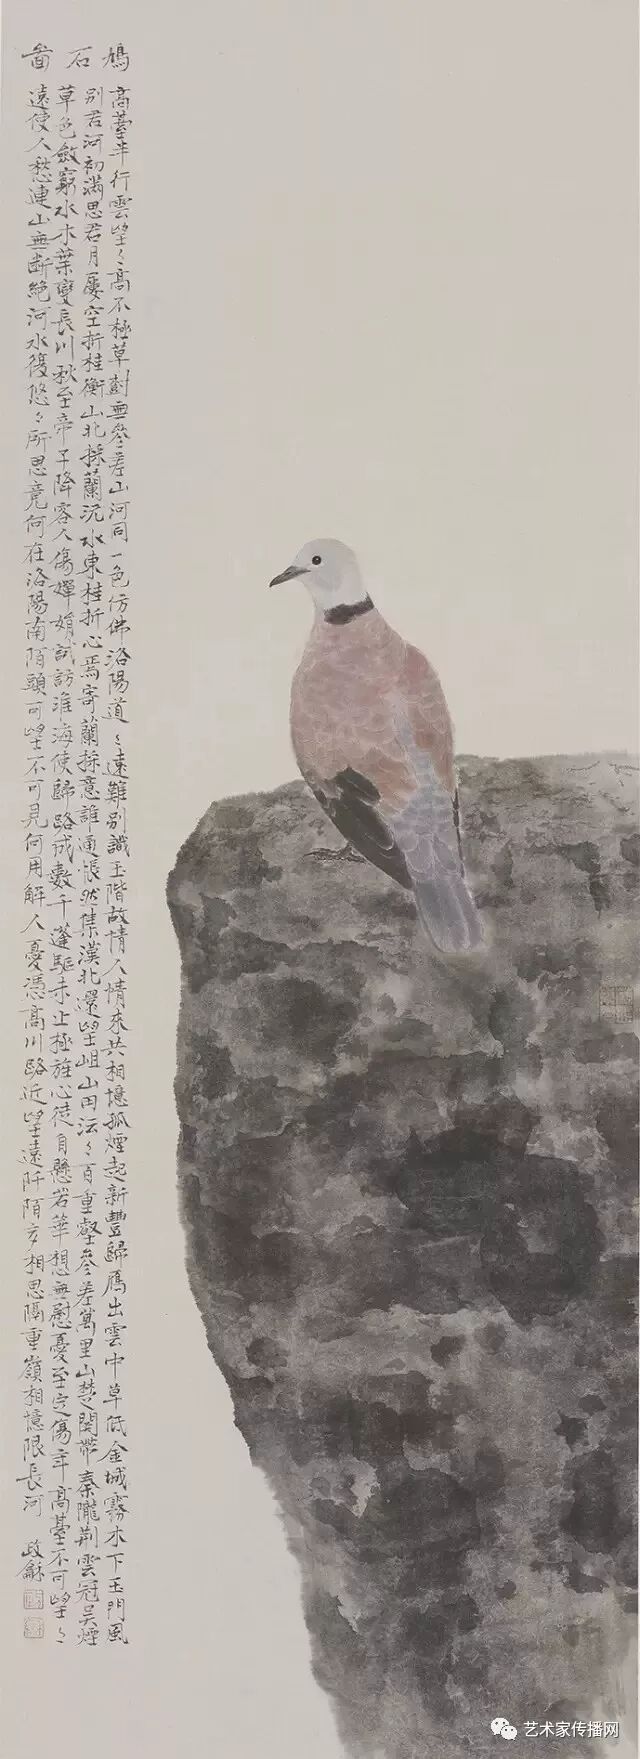 鳩石啚
高臺半行雲望〻高不極草樹無參差山河同一色仿佛洛陽道〻遠難別識玉階故情人情來共相憶孤煙起新豐歸鴈出雲中草低金城霧木下玉門風
別君河初滿思君月屢空折桂衡山北採蘭沅水東桂折心焉寄蘭採意誰通悵然集漢北還望岨山田沄〻百重壑參差萬里山楚関帶秦隴荊雲冠吳煙
草色斂窮水木葉變長川秋至帝子降客人傷嬋娟試訪淮海使歸路成數千蓬驅未止極旌心徒自懸若華想無慰憂至定傷年高臺不可望〻
遠使人愁連山無斷絕河水復悠〻所思竟何在洛陽南陌頭可望不可見何用解人憂憑高川路近望遠阡陌多相思隔重嶺相憶限長河 政龢
艺术家传播网